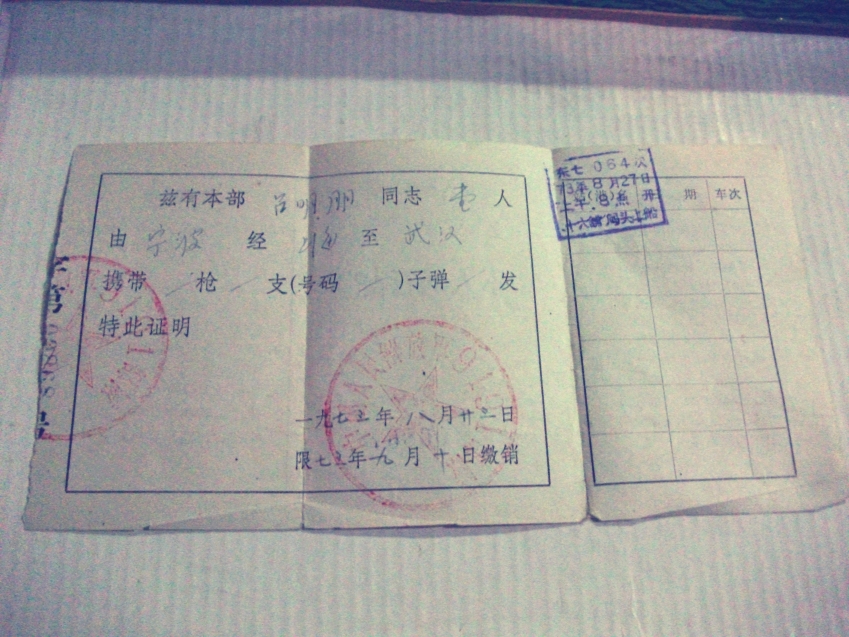 兹有本部 吕明朋 同志 壹 人
由 宁波 经 上海 至 武汉
携带 枪 支(号码 )子弹 发
特此证明
一九七三年 八月廿三日
限七三年九月十日缴销
字第 号
东七 064次
73年8月27日
午 8点 开
十六铺码头上船
期 车次